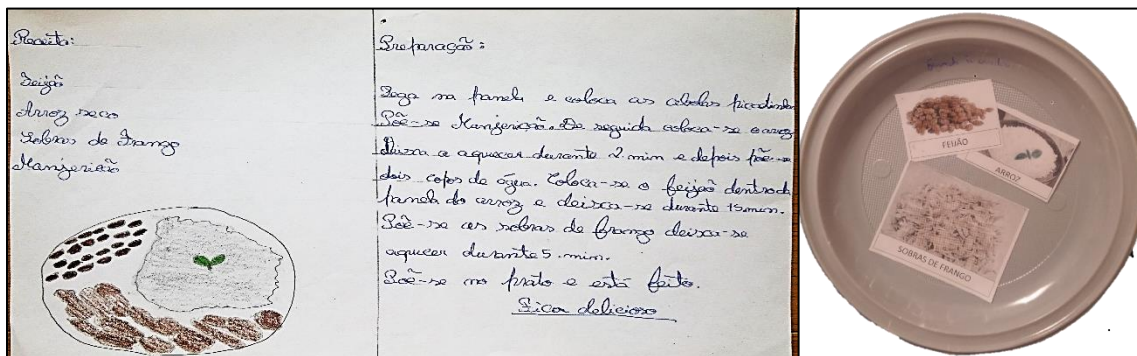 Receita:
Feijão
Arroz seco
Sobras de Frango
Manjericão
Preparação:
Pega na panela e coloca as cebolas picadinhas
Põe-se Manjericão. De seguida coloca-se o arroz
Deixa a aquecer durante 2 min e depois põe-se
dois copos de água. Coloca-se o feijão dentro da
panela do arroz e deixa-se durante 15 min.
Põe-se as sobras de frango deixa-se
aquecer durante 5 min.
Põe-se no prato e está feito.
Fica delicioso
FEIJÃO
ARROZ
SOBRAS DE FRANGO